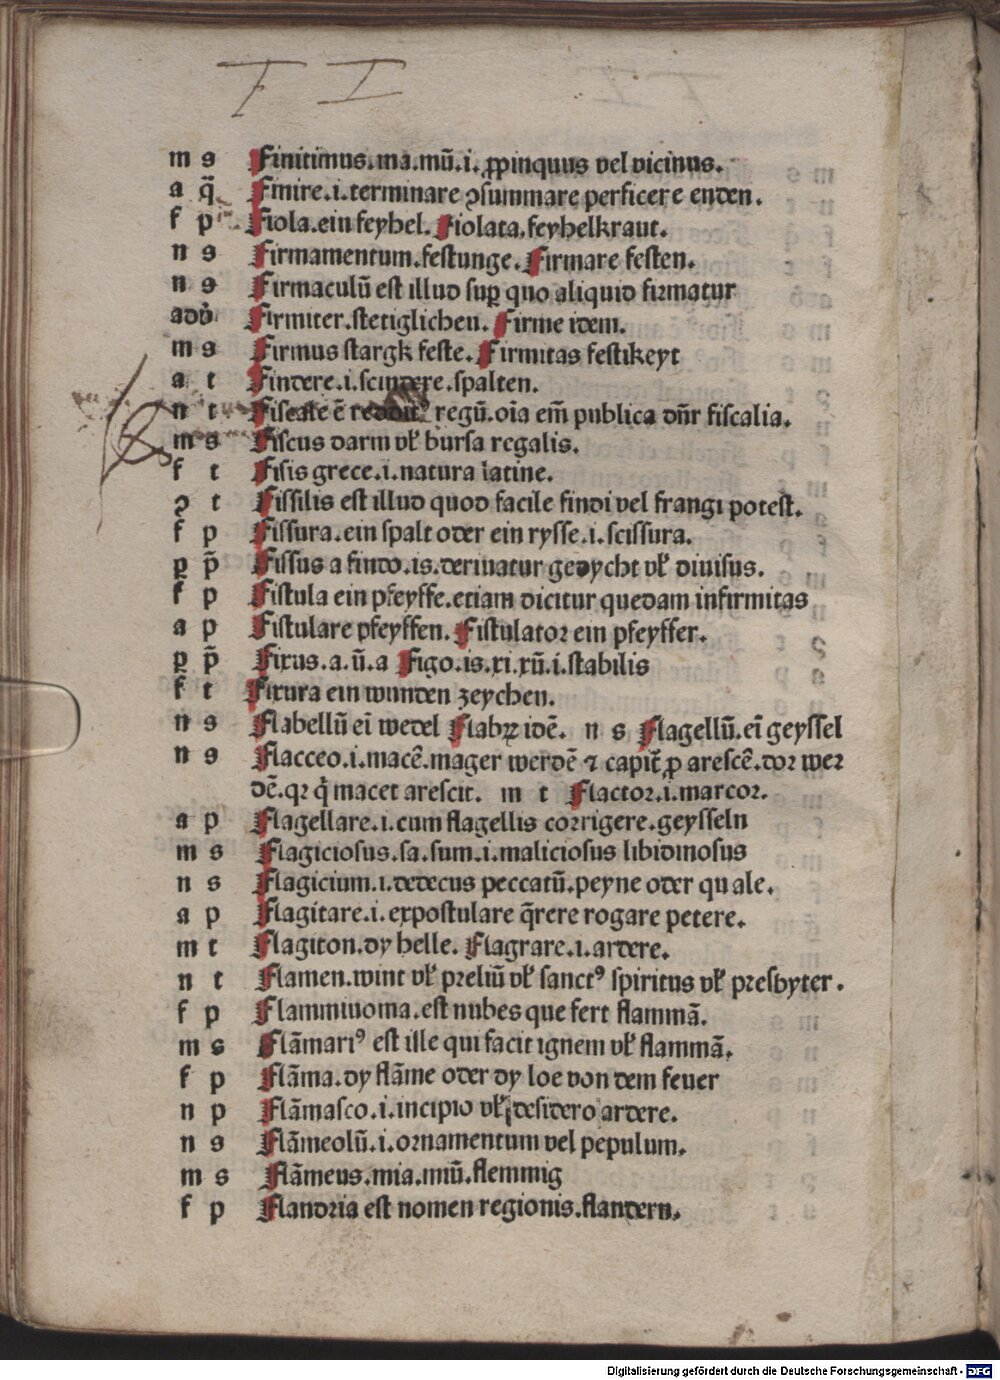 F I
m s Finitimus.ma.mū.i.ꝓpinquus vel vicinus.
a q̄ Finire.i.terminare ꝯsummare perficere enden.
f p Fiola.ein feyhel. Fiolata.feyhelkraut.
n s Firmamentum.festunge. Firmare festen.
n s Firmaculū est illud suꝑ quo aliquid firmatur
adv̉ Firmiter.stetiglichen. Firme idem.
m s Firmus stargk feste. Firmitas festikeyt
a t Findere.i.scindere.spalten.
n t Fiscale ē reddit⁹ regū.oīa em̄ publica dn̄r fiscalia.
m s Fiscus darm vl̛ bursa regalis.
f t Fisis grece.i.natura latine.
ꝯ t Fissilis est illud quod facile findi vel frangi potest.
f p Fissura.ein spalt oder ein rysse.i.scissura.
ꝑ p̄ Fissus a findo.is.deriuatur gedycht vl̛ diuisus.
f p Fistula ein pfeyffe.etiam dicitur quedam infirmitas
a p Fistulare pfeyffen. Fistulator ein pfeyffer.
ꝑ p̄ Fixus.a.ū.a Figo.is.xi.xū.i.stabilis
f t Fixura ein wunden zeychen.
n s Flabellū eī wedel Flabꝝ idē. n s Flagellū.eī geyssel
n s Flacceo.i.macē.mager werdē ⁊ capit̄ ꝓ arescē.dor wer
dē.qꝛ q̄ macet arescit. m t Flactor.i.marcor.
a p Flagellare.i.cum flagellis corrigere.geysseln
m s Flagiciosus.sa.sum.i.maliciosus libidinosus
n s Flagicium.i.dedecus peccatū.peyne oder quale.
a p Flagitare.i.expostulare q̄rere rogare petere.
m t Flagiton.dy helle. Flagrare.i.ardere.
n t Flamen.wint vl̛ preliū vl̛ sanct⁹ spiritus vl̛ presbyter.
f p Flammiuoma.est nubes que fert flammā.
m s Flāmari⁹ est ille qui facit ignem vl̛ flammā.
f p Flāma.dy flāme oder dy loe von dem feuer
n p Flāmasco.i.incipio vl̛ desidero ardere.
n s Flāmeolū.i.ornamentum vel pepulum.
m s Flāmeus.mia.miū.flemmig
f p Flandria est nomen regionis.flandern.
Digitalisierung gefördert durch die Deutsche Forschungsgemeinschaft - DFG